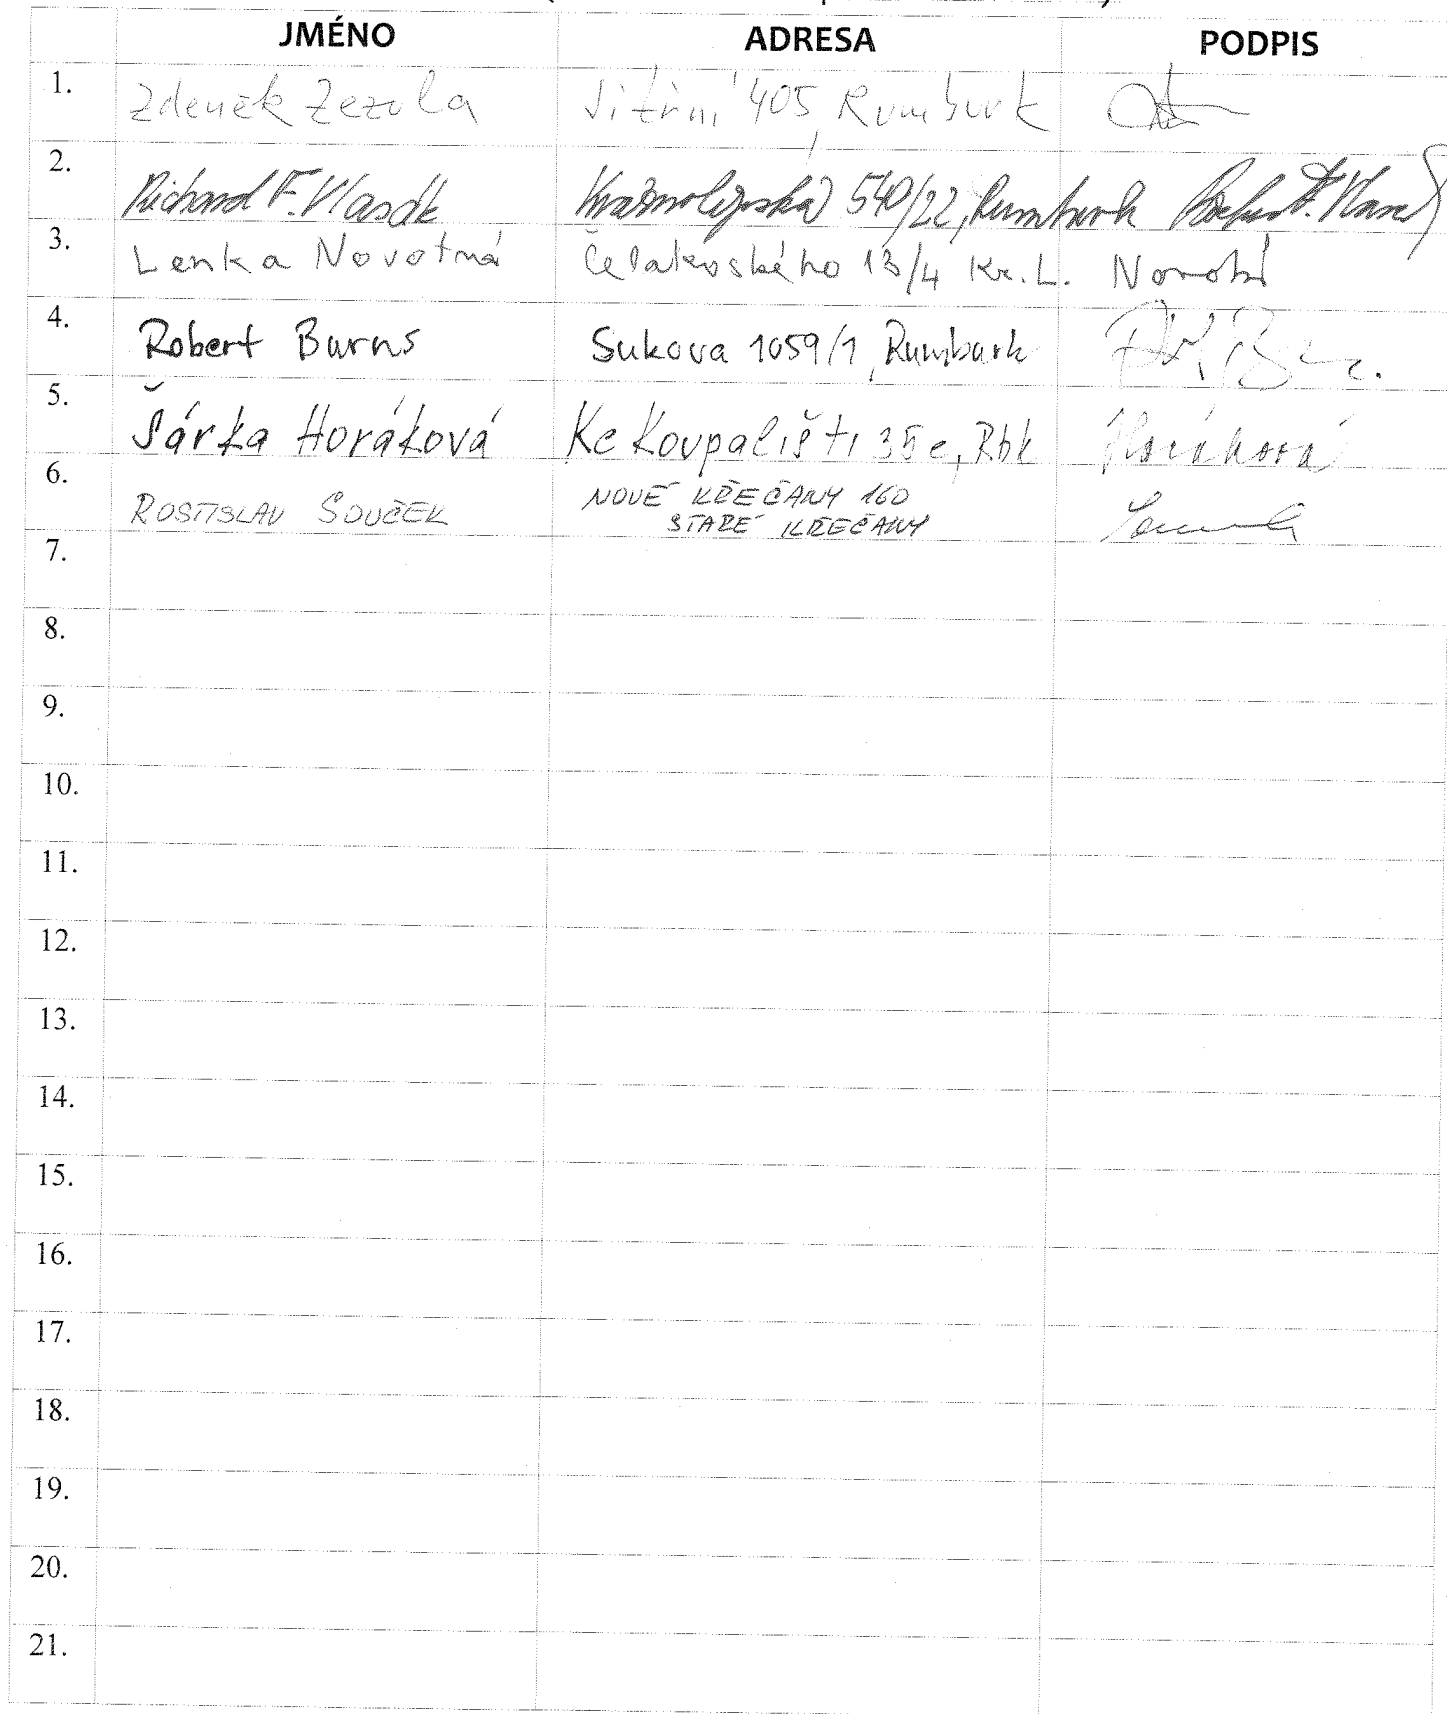 JMÉNO ADRESA PODPIS
1. Zdeněk Zezula Jitřní 405, Rumburk
2. Richard F. Vlasák Krásnolipská 540/22, Rumburk
3. Lenka Novotná Čelakovského 13/4 Kr. L. Novotná
4. Robert Burns Sukova 1059/1, Rumburk
5. Šárka Horáková Ke Koupališti 35e, Rbk Horáková
6. ROSTISLAV SOUČEK NOVÉ KŘEČANY 160
STARÉ KŘEČANY
7.
8.
9.
10.
11.
12.
13.
14.
15.
16.
17.
18.
19.
20.
21.